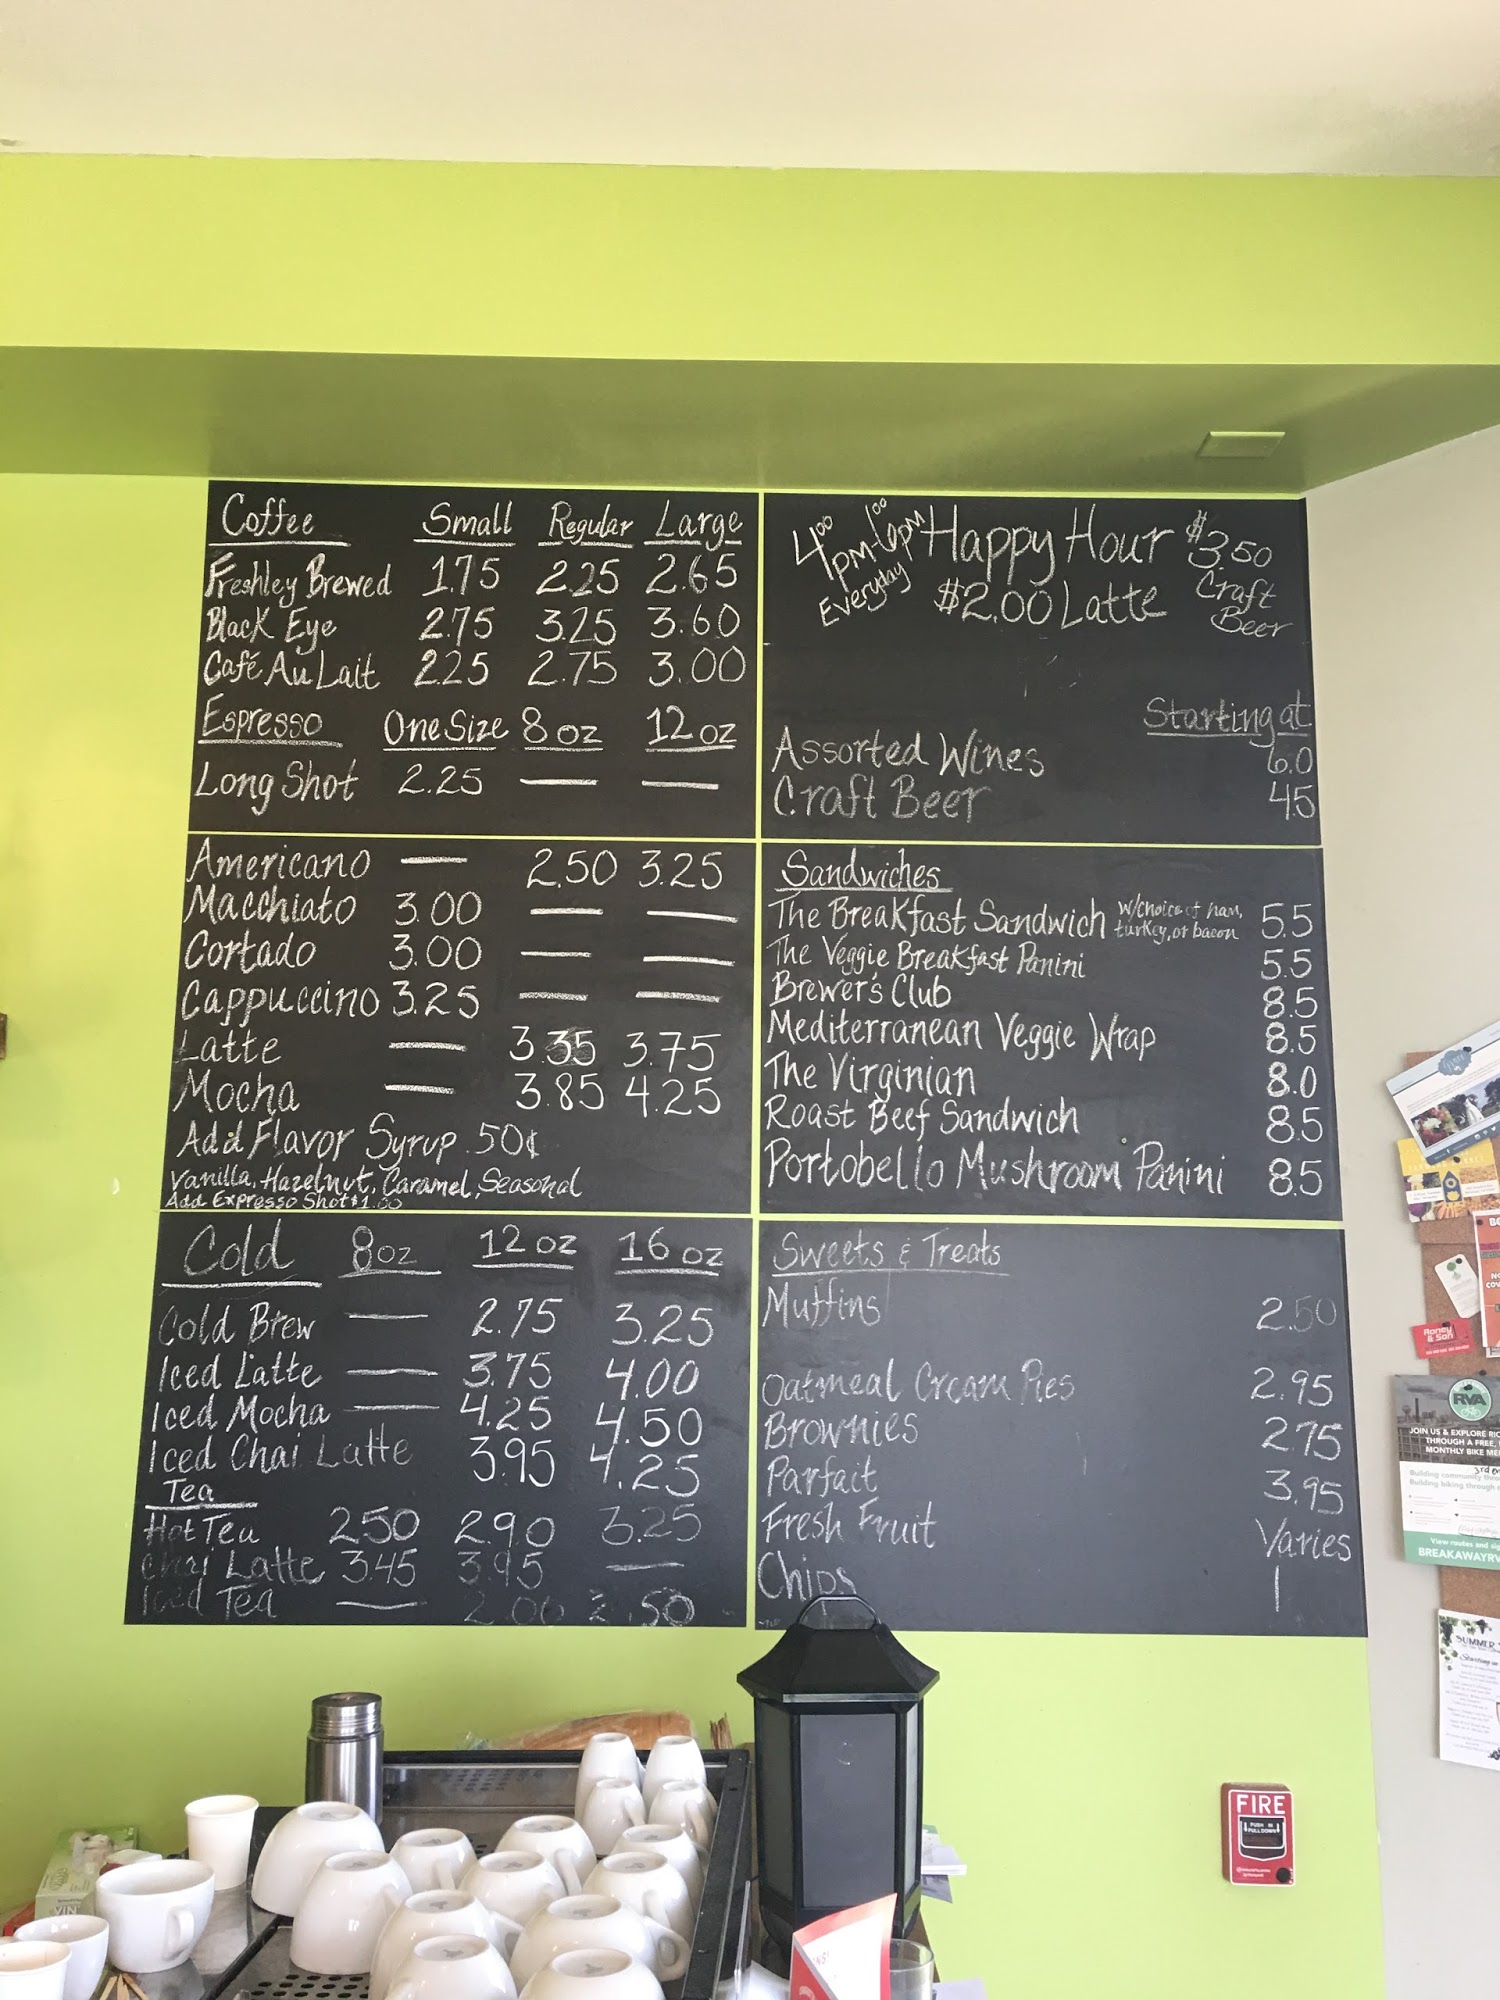 Coffee Small Regular Large
Freshley Brewed 1.75 2.25 2.65
Black Eye 2.75 3.25 3.60
Café Au Lait 2.25 2.75 3.00
Espresso One Size 8oz 12oz
Long Shot 2.25 — —
Americano — 2.50 3.25
Macchiato 3.00 — —
Cortado 3.00 — —
Cappuccino 3.25 — —
Latte — 3.35 3.75
Mocha — 3.85 4.25
Add Flavor Syrup .50¢
Vanilla, Hazelnut, Caramel, Seasonal
Add Expresso Shot $1.00
Cold 8oz 12oz 16oz
Cold Brew — 2.75 3.25
Iced Latte — 3.75 4.00
Iced Mocha — 4.25 4.50
Iced Chai Latte 3.95 4.25
Tea
Hot Tea 2.50 2.90 3.25
Chai Latte 3.45 3.95 —
Iced Tea — 2.00 2.50
4:00 PM-6:00 PM
Everyday
Happy Hour
$2.00 Latte
$3.50
Craft
Beer
Starting at
Assorted Wines 6.0
Craft Beer 4.5
Sandwiches
The Breakfast Sandwich w/choice of ham, 5.5
turkey, or bacon
The Veggie Breakfast Panini 5.5
Brewer's Club 8.5
Mediterranean Veggie Wrap 8.5
The Virginian 8.0
Roast Beef Sandwich 8.5
Portobello Mushroom Panini 8.5
Sweets & Treats
Muffins 2.50
Oatmeal Cream Pies 2.95
Brownies 2.75
Parfait 3.95
Fresh Fruit Varies
Chips 1
Roney
& Son
RVA
JOIN US & EXPLORE
THROUGH A FREE,
MONTHLY BIKE
Building community
Building biking through
View routes and
SUMMER
Starting
FIRE
PUSH IN
PULL DOWN